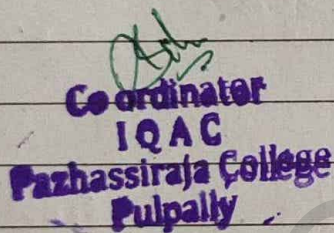 Co ordinator
IQAC
Pazhassiraja College
Pulpally